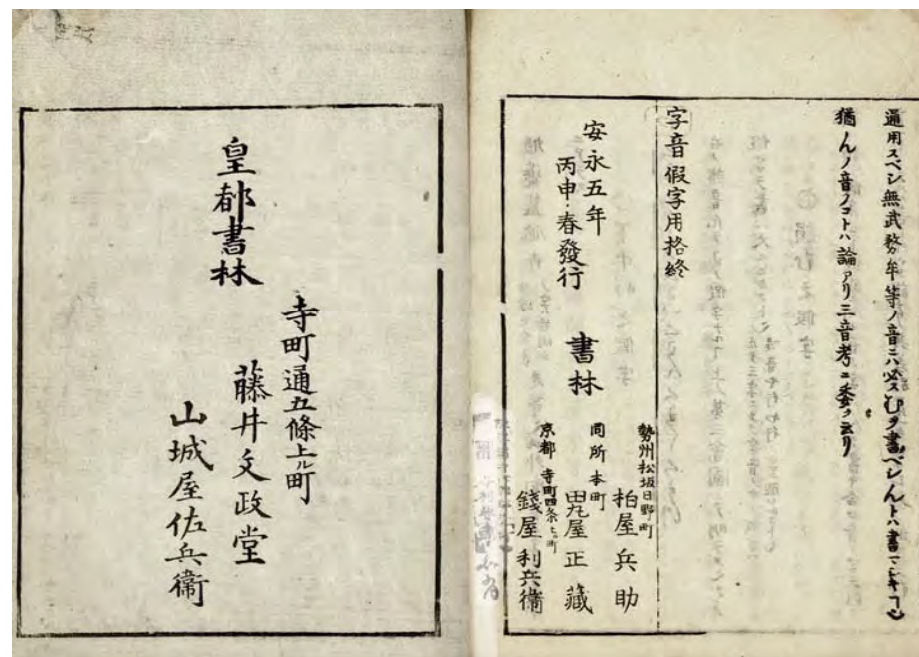 通用スベシ無武務牟等ノ音ニハ必スむヲ書ベシんトハ書マシキヿ也
猶んノ音ノコトハ論アリ三音考ニ委ク云リ
字音假字用格終
安永五年
丙申・春發行
書林
勢州松坂日野町
柏屋兵助
同所本町
毘屋正藏
京都寺町四条上ル町
錢屋利兵衞
皇都書林
寺町通五條上ル町
藤井文政堂
山城屋佐兵衞